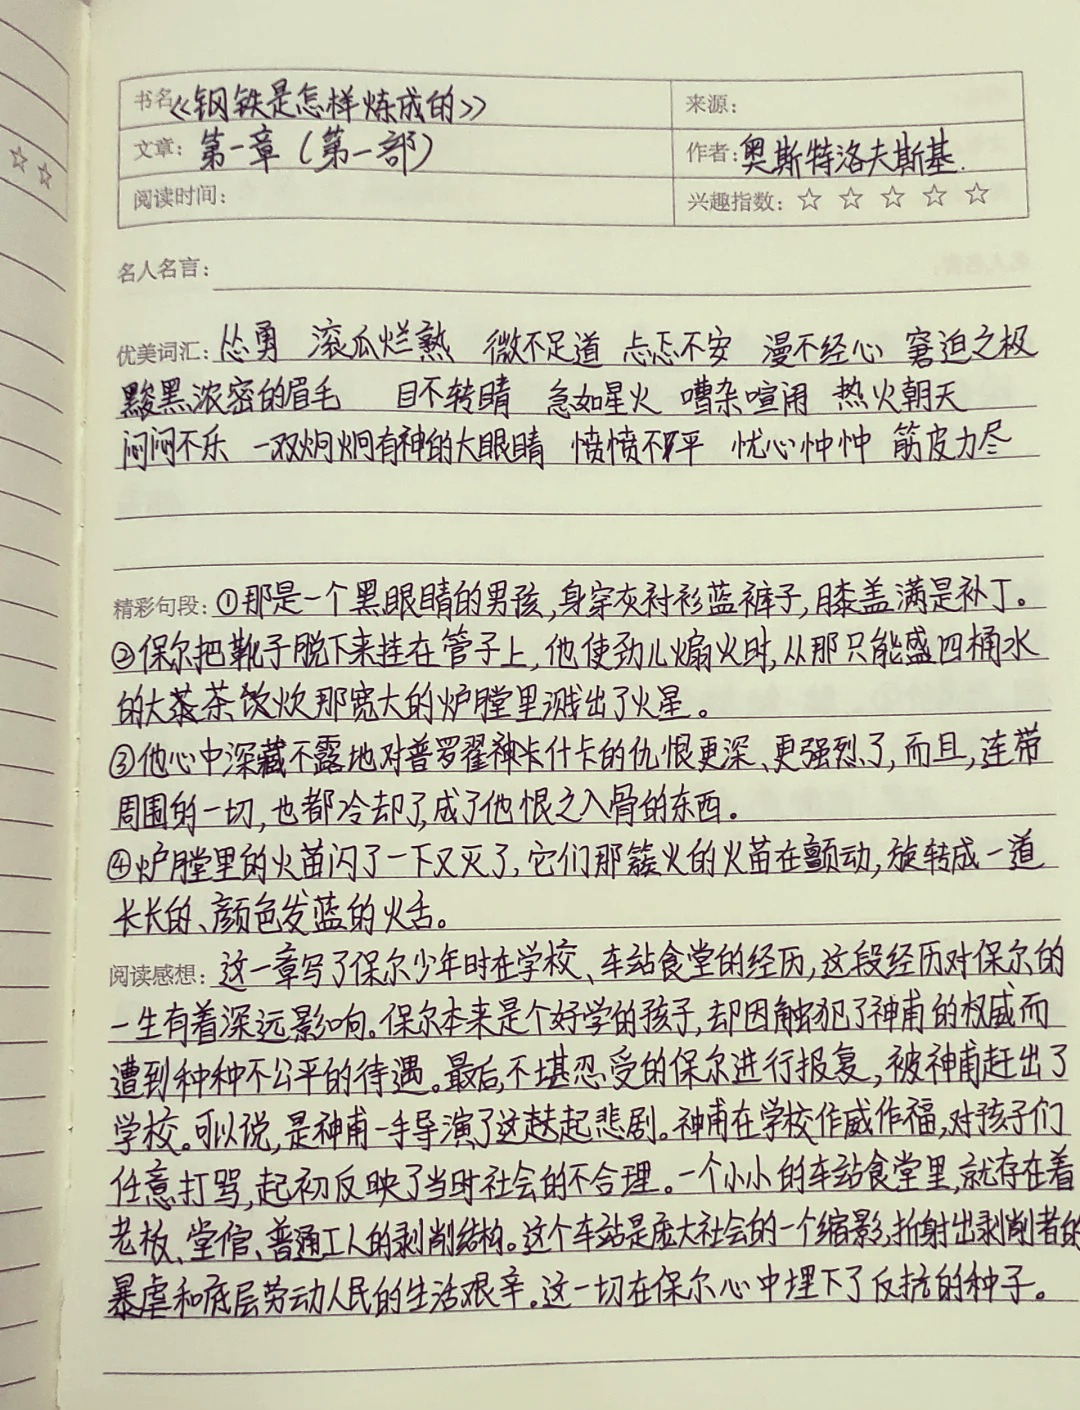 书名:《钢铁是怎样炼成的》 来源:
文章: 第一章（第一部） 作者:奥斯特洛夫斯基.
阅读时间: 兴趣指数: ☆ ☆ ☆ ☆ ☆
名人名言:
优美词汇: 怂勇 滚瓜烂熟 微不足道 忐忑不安 漫不经心 窘迫之极
黢黑浓密的眉毛 目不转睛 急如星火 嘈杂喧闹 热火朝天
闷闷不乐 一双炯炯有神的大眼睛 愤愤不平 忧心忡忡 筋皮力尽
精彩句段: ①那是一个黑眼睛的男孩,身穿灰衬衫蓝裤子,膝盖满是补丁。
②保尔把靴子脱下来挂在管子上,他使劲儿煽火时,从那只能盛四桶水
的大茶饮炊那宽大的炉膛里溅出了火星。
③他心中深藏不露地对普罗霍神卡什卡的仇恨更深、更强烈了,而且,连带
周围的一切,也都冷却了,成了他恨之入骨的东西。
④炉膛里的火苗闪了一下又灭了,它们那簇火的火苗在颤动,旋转成一道
长长的、颜色发蓝的火舌。
阅读感想: 这一章写了保尔少年时在学校、车站食堂的经历,这段经历对保尔的
一生有着深远影响。保尔本来是个好学的孩子,却因触犯了神甫的权威而
遭到种种不公平的待遇。最后,不堪忍受的保尔进行报复,被神甫赶出了
学校。可以说,是神甫一手导演了这起悲剧。神甫在学校作威作福,对孩子们
任意打骂,起初反映了当时社会的不合理。一个小小的车站食堂里,就存在着
老板、堂倌、普通工人的剥削结构。这个车站是庞大社会的一个缩影,折射出剥削者的
暴虐和底层劳动人民的生活艰辛。这一切在保尔心中埋下了反抗的种子。